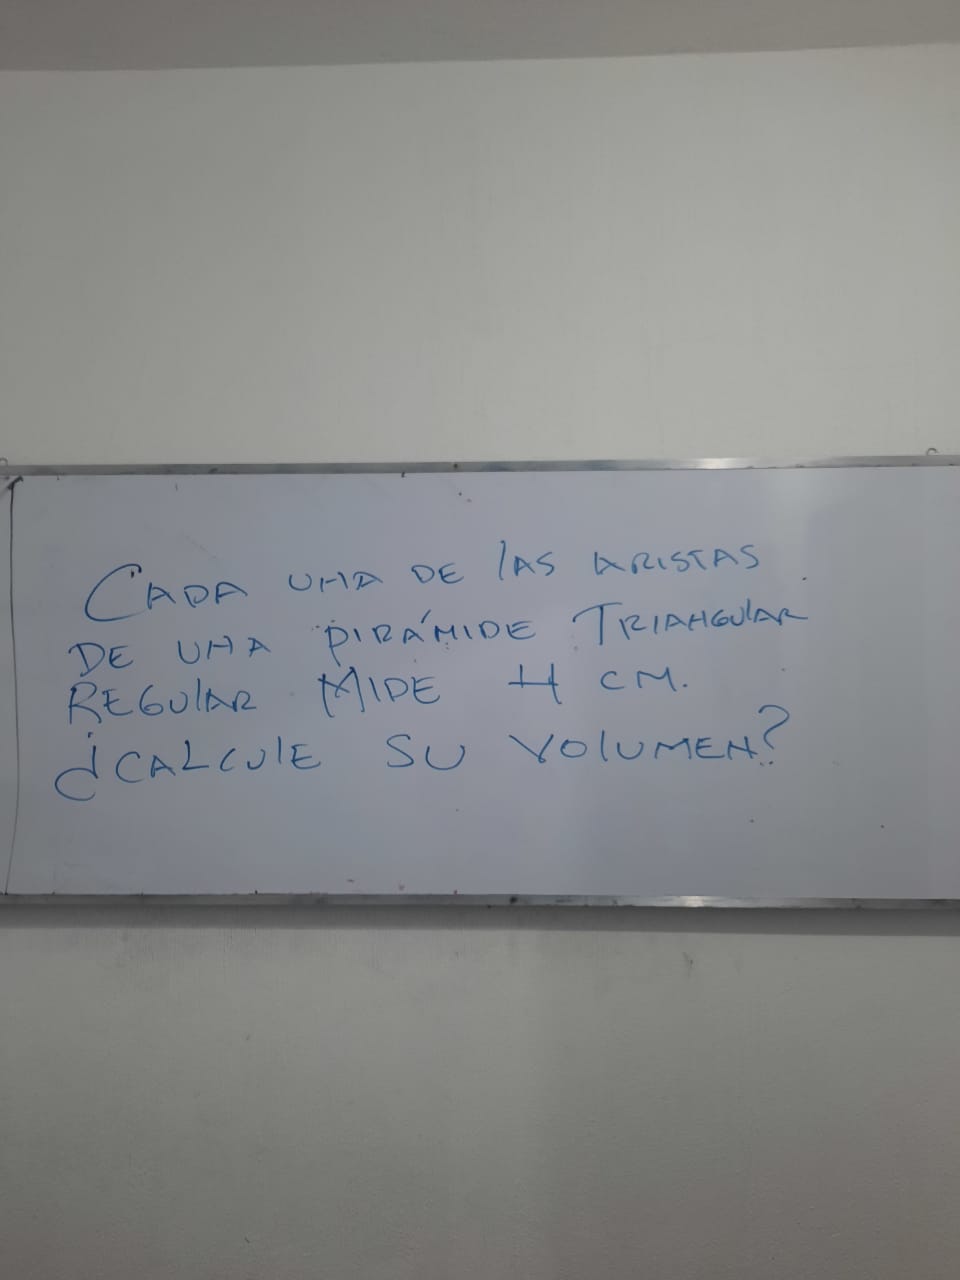 CADA UNA DE LAS ARISTAS
DE UNA PIRÁMIDE TRIANGULAR
REGULAR MIDE 4 CM.
¿CALCULE SU VOLUMEN?